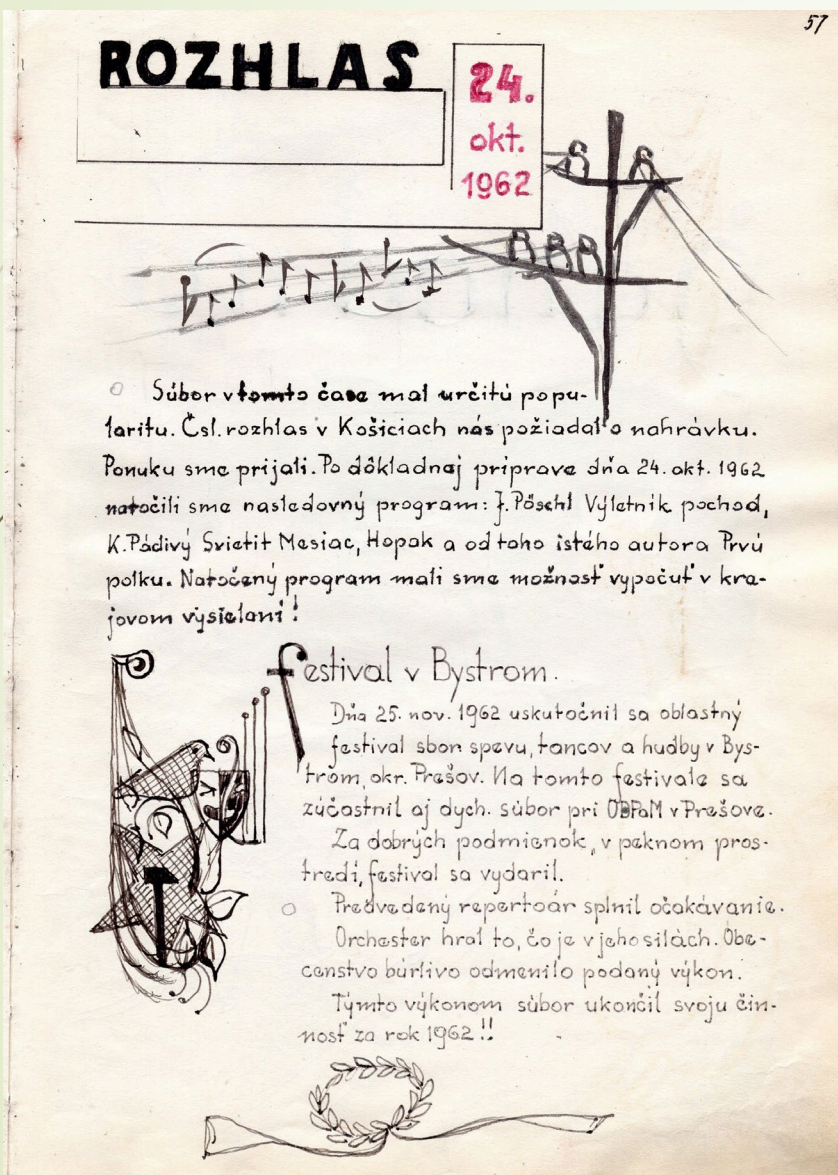 57
ROZHLAS
24.
okt.
1962
Súbor v tomto čase mal určitú popu-
laritu. Čsl. rozhlas v Košiciach nás požiadal o nahrávku.
Ponuku sme prijali. Po dôkladnej príprave dňa 24. okt. 1962
natočili sme nasledovný program: J. Pöschl Výletník pochod,
K. Pádivý Svietit Mesiac, Hopak a od toho istého autora Prvú
polku. Natočený program mali sme možnosť vypočuť v kra-
jovom vysielaní!
festival v Bystrom.
Dňa 25. nov. 1962 uskutočnil sa oblastný
festival sbor. spevu, tancov a hudby v Bys-
trom, okr. Prešov. Na tomto festivale sa
zúčastnil aj dych. súbor pri OBPaM v Prešove.
Za dobrých podmienok, v peknom pros-
tredí, festival sa vydaril.
Predvedený repertoár splnil očakávanie.
Orchester hral to, čo je v jeho silách. Obe-
censtvo búrlivo odmenilo podaný výkon.
Týmto výkonom súbor ukončil svoju čin-
nosť za rok 1962!!